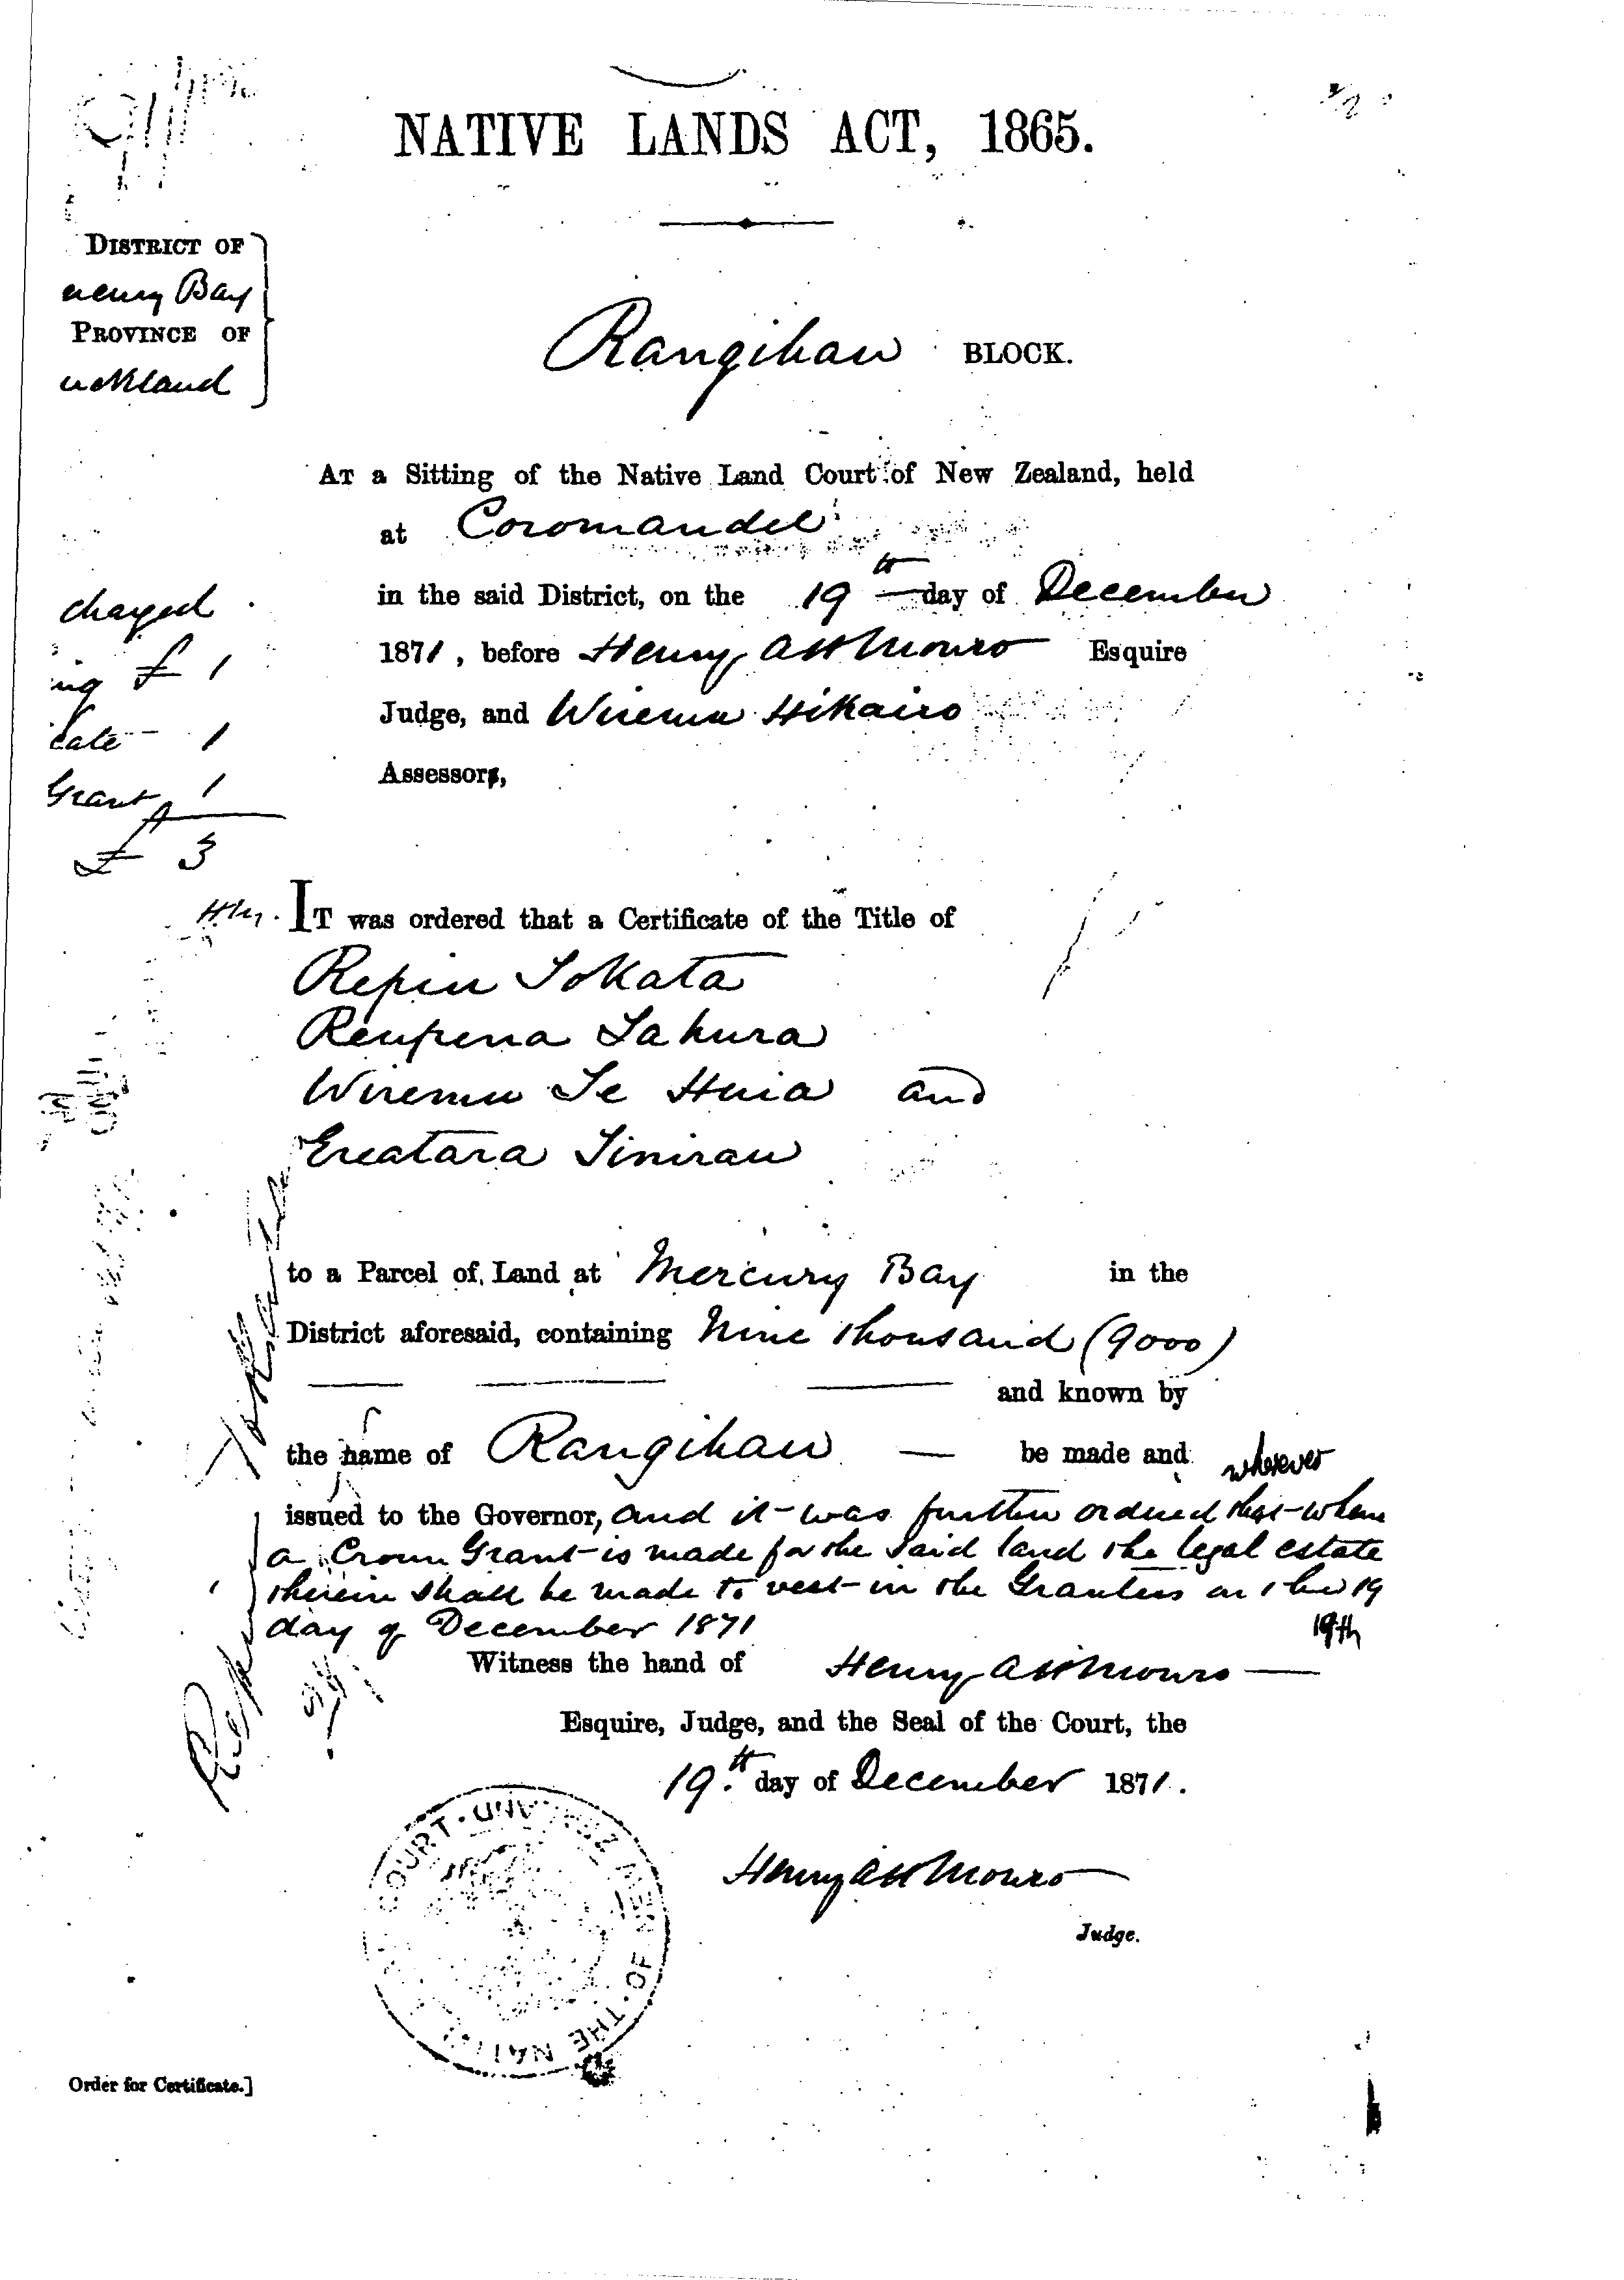 NATIVE LANDS ACT, 1865.
DISTRICT OF
ercury Bay
PROVINCE OF
uckland
Rangihau BLOCK.
AT a Sitting of the Native Land Court of New Zealand, held
at Coromandel
in the said District, on the 19th day of December
1871, before Henry A H Monro Esquire
Judge, and Wiremu Hikairo
Assessors,
charged
ng £ 1
cate 1
Grant 1
£ 3
IT was ordered that a Certificate of the Title of
Repiu Tokata
Reupena Tahura
Wiremu Te Huia and
Ereatara Tinirau
to a Parcel of Land at Mercury Bay in the
District aforesaid, containing Nine thousand (9000)
and known by
the name of Rangihau be made and
wherever
issued to the Governor, and it was further ordered that when
a Crown Grant is made for the said land the legal estate
therein shall be made to vest in the Grantees on the 19
day of December 1871
19th
Witness the hand of Henry A H Monro
Esquire, Judge, and the Seal of the Court, the
19th day of December 1871.
Henry A H Monro
Judge.
COURT · OF NEW · THE NATI
Order for Certificate.]